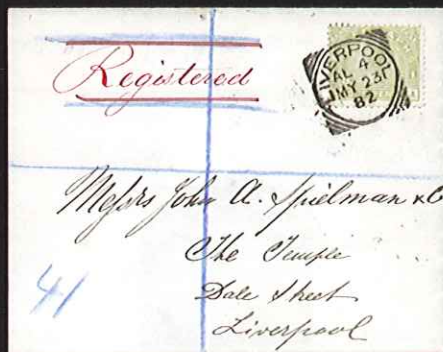 Registered
LIVERPOOL
AL 4
MY 23
82
Messrs John A. Spielman & Co
The Temple
Dale Street
Liverpool
41